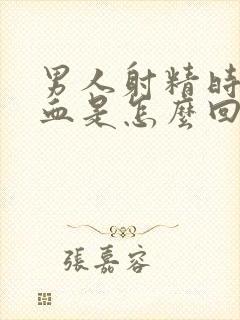 男人射精时
血是怎麼回
張嘉容